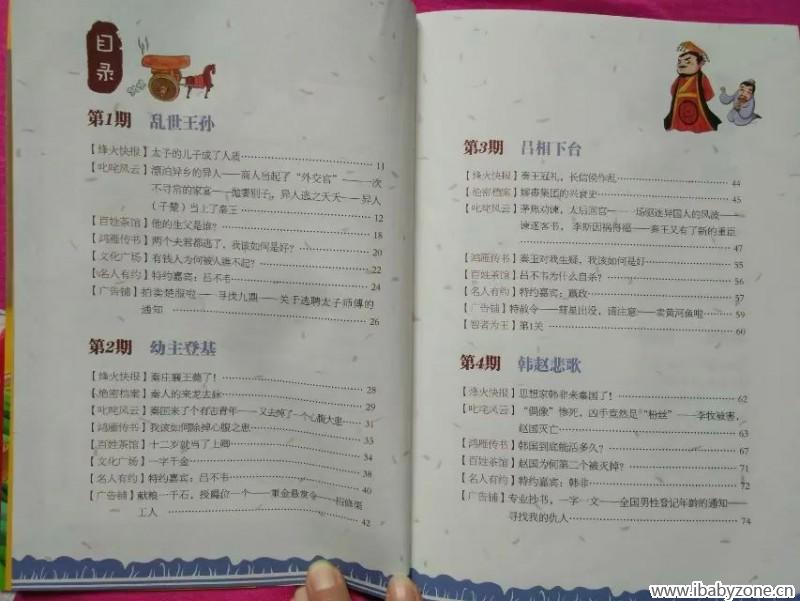 目录
第1期 乱世王孙
【烽火快报】太子的儿子成了人质 11
【叱咤风云】漂泊异乡的异人——商人当起了“外交官”——一次
不寻常的家宴——抛妻别子，异人逃之夭夭——异人
（子楚）当上了秦王 12
【百姓茶馆】他的生父是谁？ 18
【鸿雁传书】两个夫君都逃了，我该如何是好？ 20
【文化广场】有钱人为何被人瞧不起？ 22
【名人有约】特约嘉宾：吕不韦 24
【广告铺】拍卖楚服啦——寻找九鼎——关于选聘太子师傅的
通知 26
第2期 幼主登基
【烽火快报】秦庄襄王薨了！ 28
【绝密档案】秦人的来龙去脉 29
【叱咤风云】秦国来了个有志青年——又去掉了一个心腹大患 31
【鸿雁传书】我该如何除掉心腹之患 33
【百姓茶馆】十二岁就当了上卿 34
【文化广场】一字千金 38
【名人有约】特约嘉宾：吕不韦 40
【广告铺】献粮一千石，授爵位一个——重金悬赏令——招修渠
工人 42
第3期 吕相下台
【烽火快报】秦王冠礼，长信侯作乱 44
【绝密档案】嫪毐集团的兴衰史 45
【叱咤风云】茅焦劝谏，太后回宫——一场驱逐异国人的风波——
谏逐客书，李斯因祸得福——秦王又有了新的重臣
47
【鸿雁传书】秦王对我生疑，我该如何是好 55
【百姓茶馆】吕不韦为什么自杀？ 56
【名人有约】特约嘉宾：嬴政 57
【广告铺】特赦令——彗星出没，请注意——卖黄河鱼啦 59
【智者为王】第1关 60
第4期 韩赵悲歌
【烽火快报】思想家韩非来秦国了！ 62
【叱咤风云】“偶像”惨死，凶手竟然是“粉丝”——李牧被害，
赵国灭亡 63
【鸿雁传书】韩国到底能活多久？ 67
【百姓茶馆】赵国为何第二个被灭掉？ 71
【名人有约】特约嘉宾：韩非 72
【广告铺】专业抄书，一字一文——全国男性登记年龄的通知——
寻找我的仇人 74
www.ibabyzone.cn